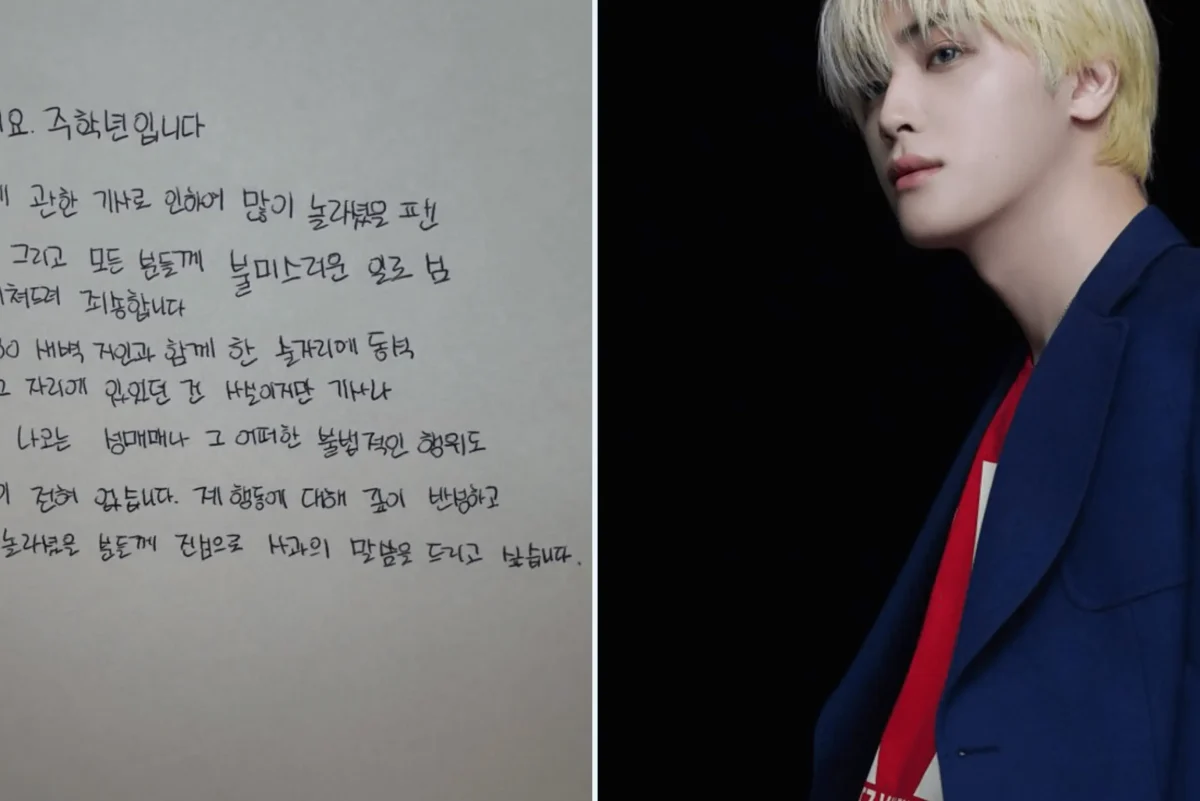 요. 주학년입니다
관한 기사로 인하여 많이 놀라셨을 팬
그리고 모든 분들께 불미스러운 일로 심
쳐드려 죄송합니다
30 새벽 지인과 함께 한 술자리에 동석
자리에 있었던 건 사실이지만 기사나
나오는 성매매나 그 어떠한 불법적인 행위도
전혀 없습니다. 제 행동에 대해 깊이 반성하고
놀라셨을 분들께 진심으로 사과의 말씀을 드리고 싶습니다.